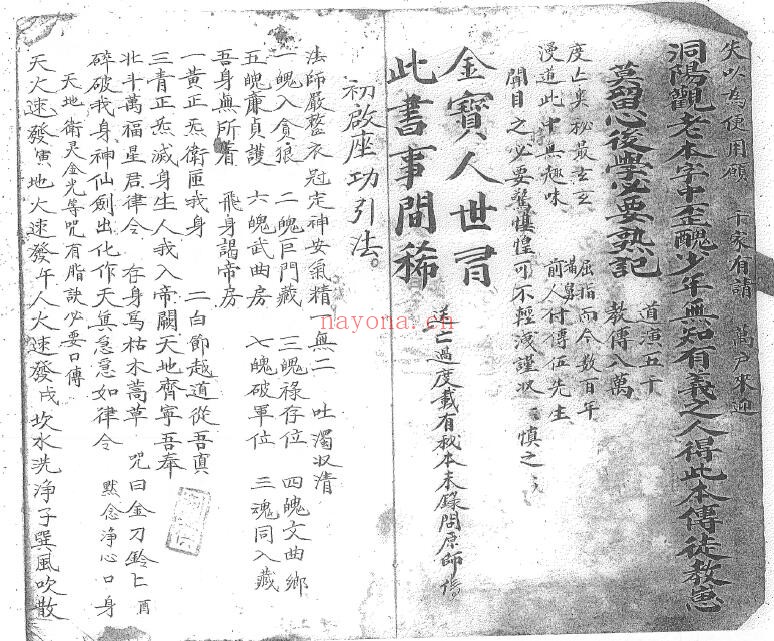 失吹為便用願 千家有請 萬戶來迎
洞陽觀老本字中歪醜少年無知有義之人得此本傳徒教
莫留心後學必要熟記 道演五千 教傳八萬
度亡奥秘最玄玄 屈指而今数百年
漫道此中無趣味 前人付傳伍先生
開目之必要驚惶惶可不輕洩謹収 慎之
金寶人世
此書事間稀
亡過度載有秘本未錄問原師
初啟座功引法
法師嚴整衣冠定神安氣精一無二 吐濁収清
一魄入貪狼 二魄巨門藏 三魄祿存位 四魄文曲鄉
五魄廉貞護 六魄武曲房 七魄破軍位 三魂同入藏
吾身無所着 飛身謁帝房
一黃正炁衛匝我身 二白節越道從吾真
三青正炁滅身生人我入帝闕天地齊寧吾奉
北斗萬福星君律令 存身為枯木蒿草 咒曰金刀鈴
碎破我身神仙劍出化作天無急急如律令 默念淨心口身
天地衛灵金光等咒有脂訣必要口傳
天火速發寅地火速發午人火速發戌坎水洗淨子巽風吹散
nayona.cn